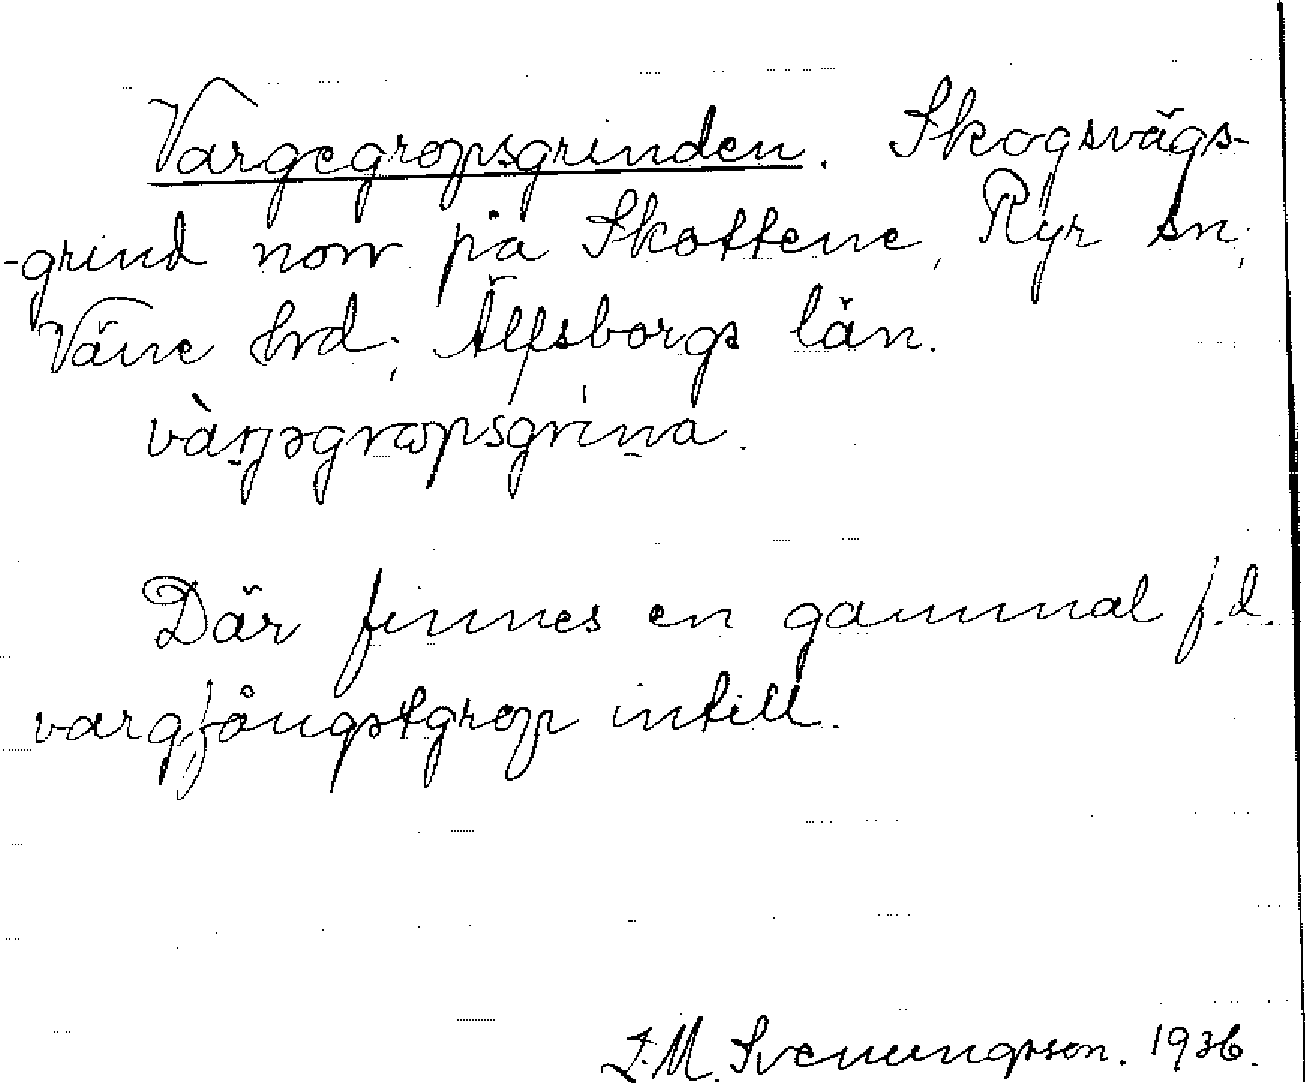 Vargegropsgrinden. Skogsvägs-
-grind norr på Skottene, Ryr sn;
Väne hrd; Älfsborgs län.
Där finnes en gammal f.d.
vargfångstgrop intill.
F.M. Svenungsson. 1936.